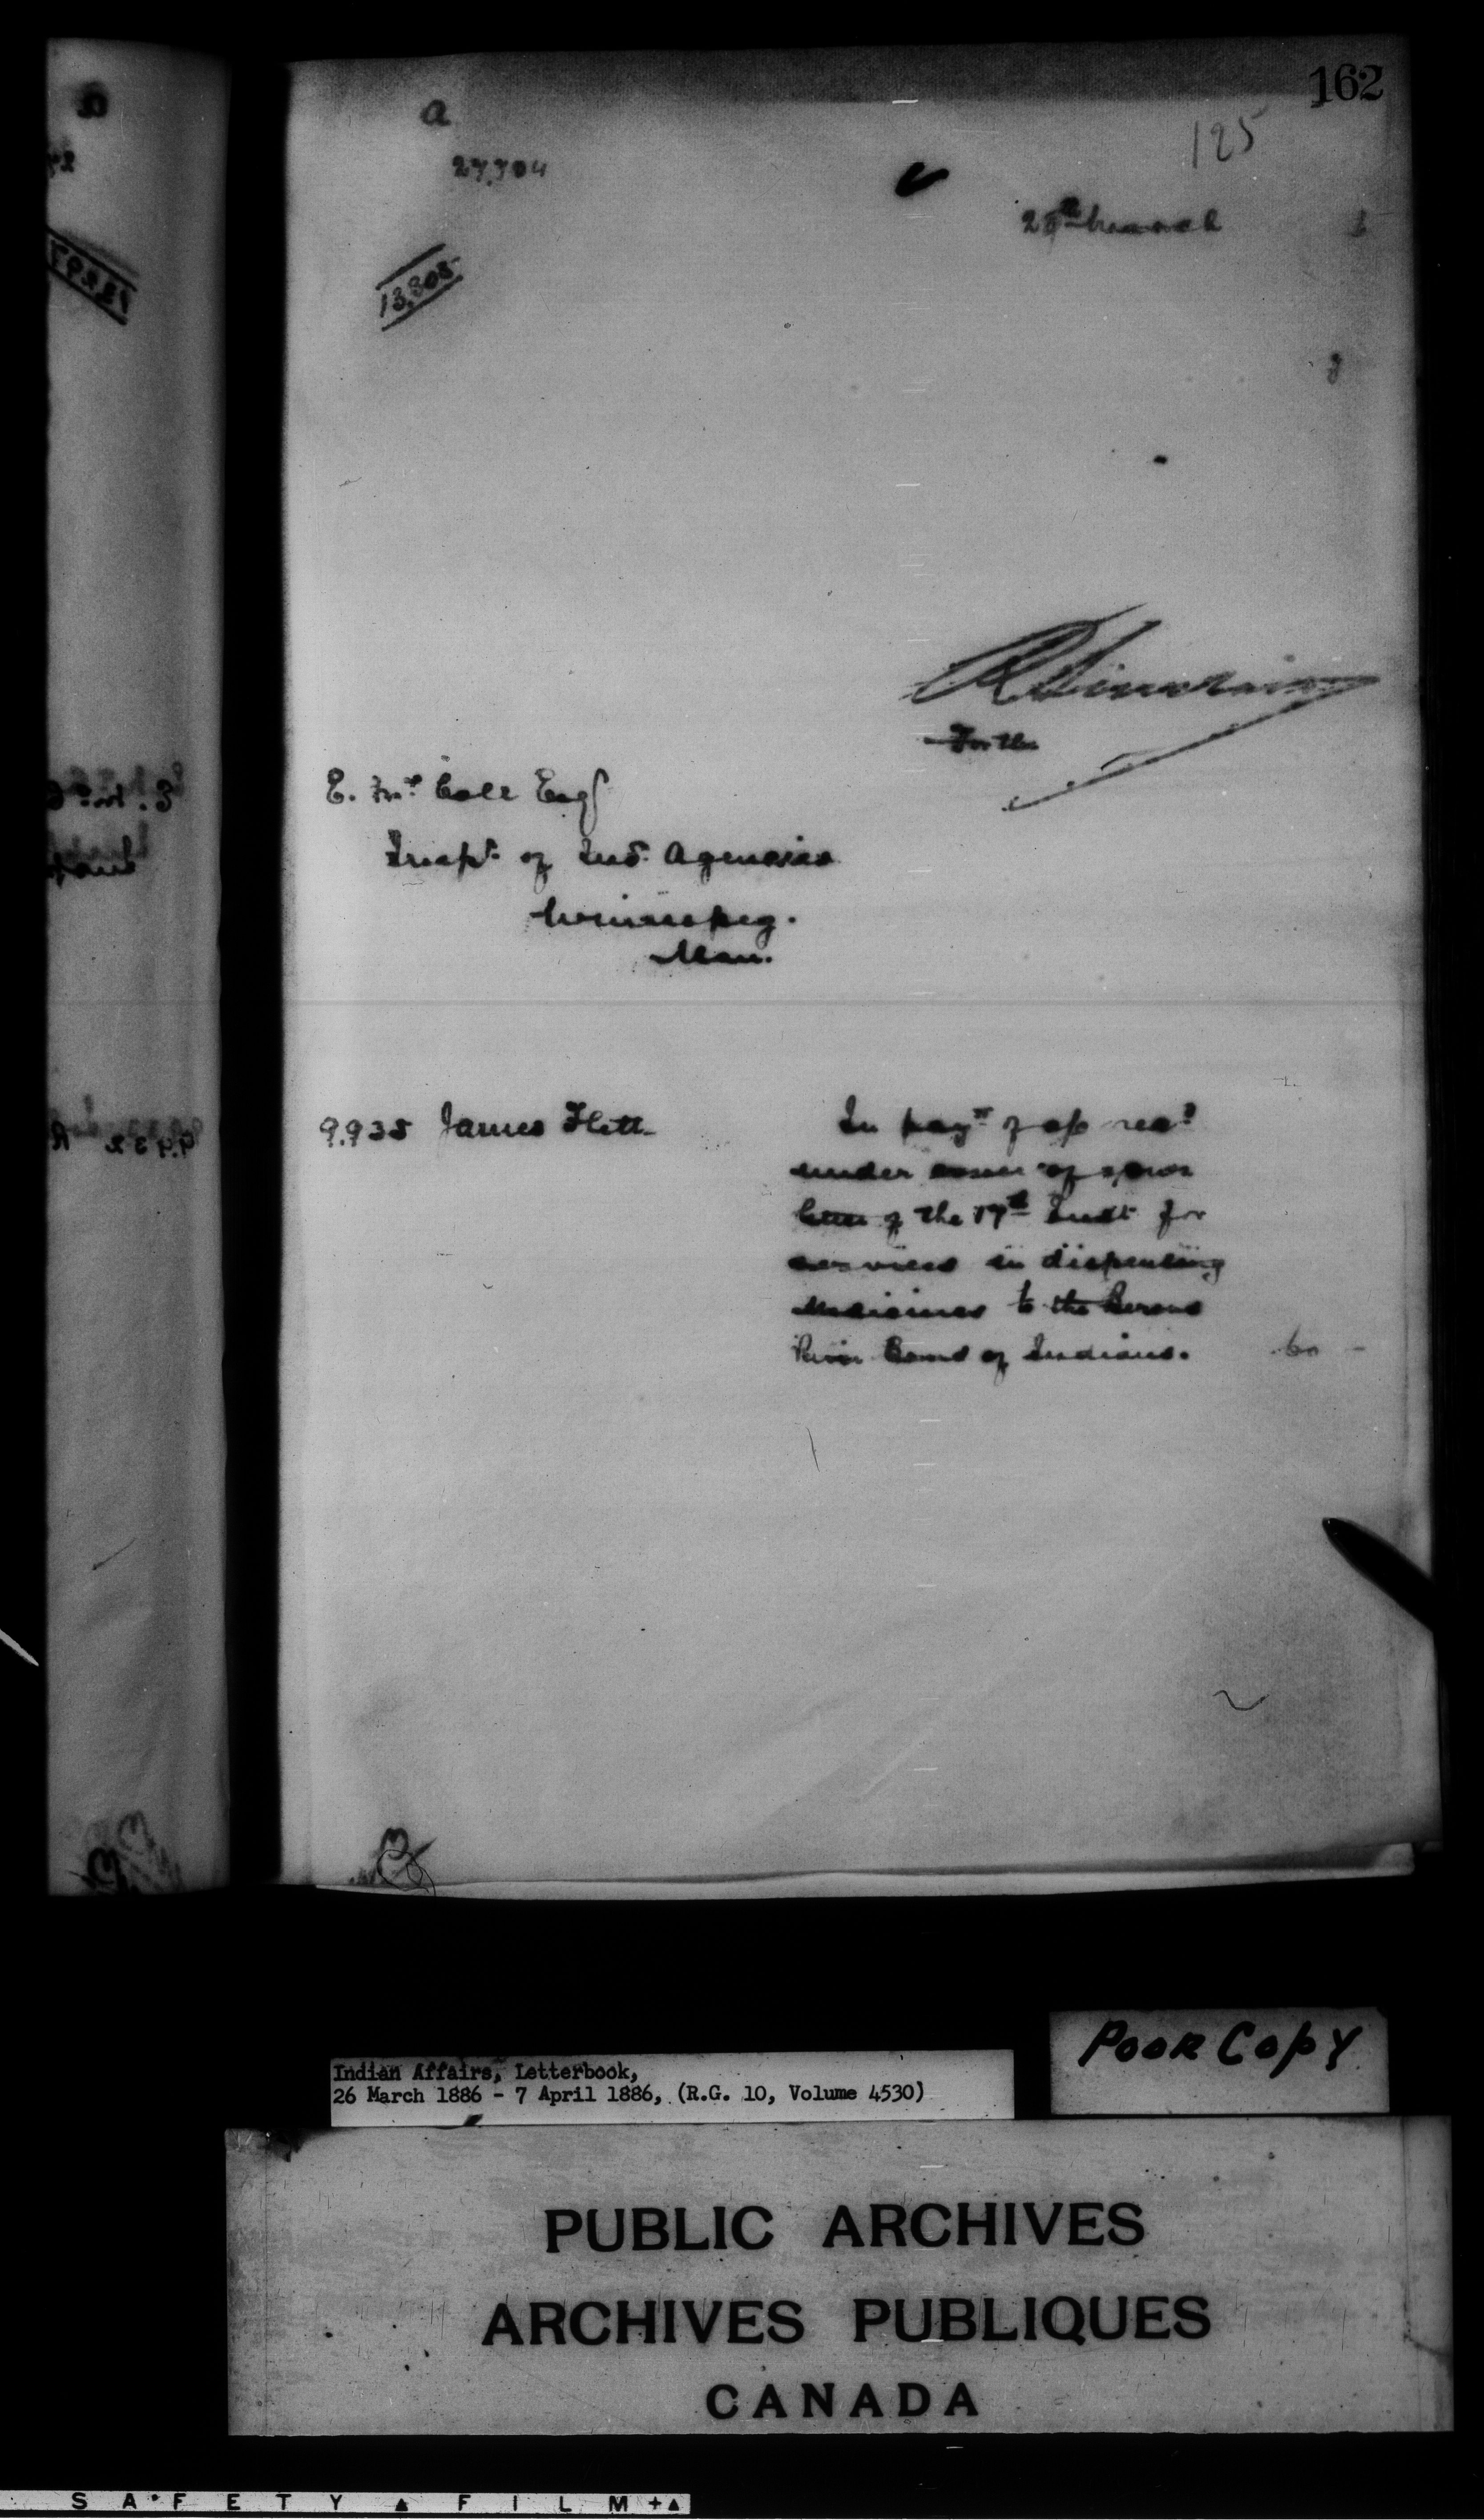 162
a
125
27,704
25th March 6
13,805
R Sinclair
For the
E. McColl Esq
Inspr. of Ind. Agencies
Winnipeg.
Man.
9.935 James Flett In payt of a/c recd
under cover of your
letter of the 19th Inst for
services in dispensing
Medicines to the Berens
River Band of Indians. 60 -
Indian Affairs, Letterbook,
26 March 1886 - 7 April 1886, (R.G. 10, Volume 4530)
POOR COPY
PUBLIC ARCHIVES
ARCHIVES PUBLIQUES
CANADA
SAFETY FILM